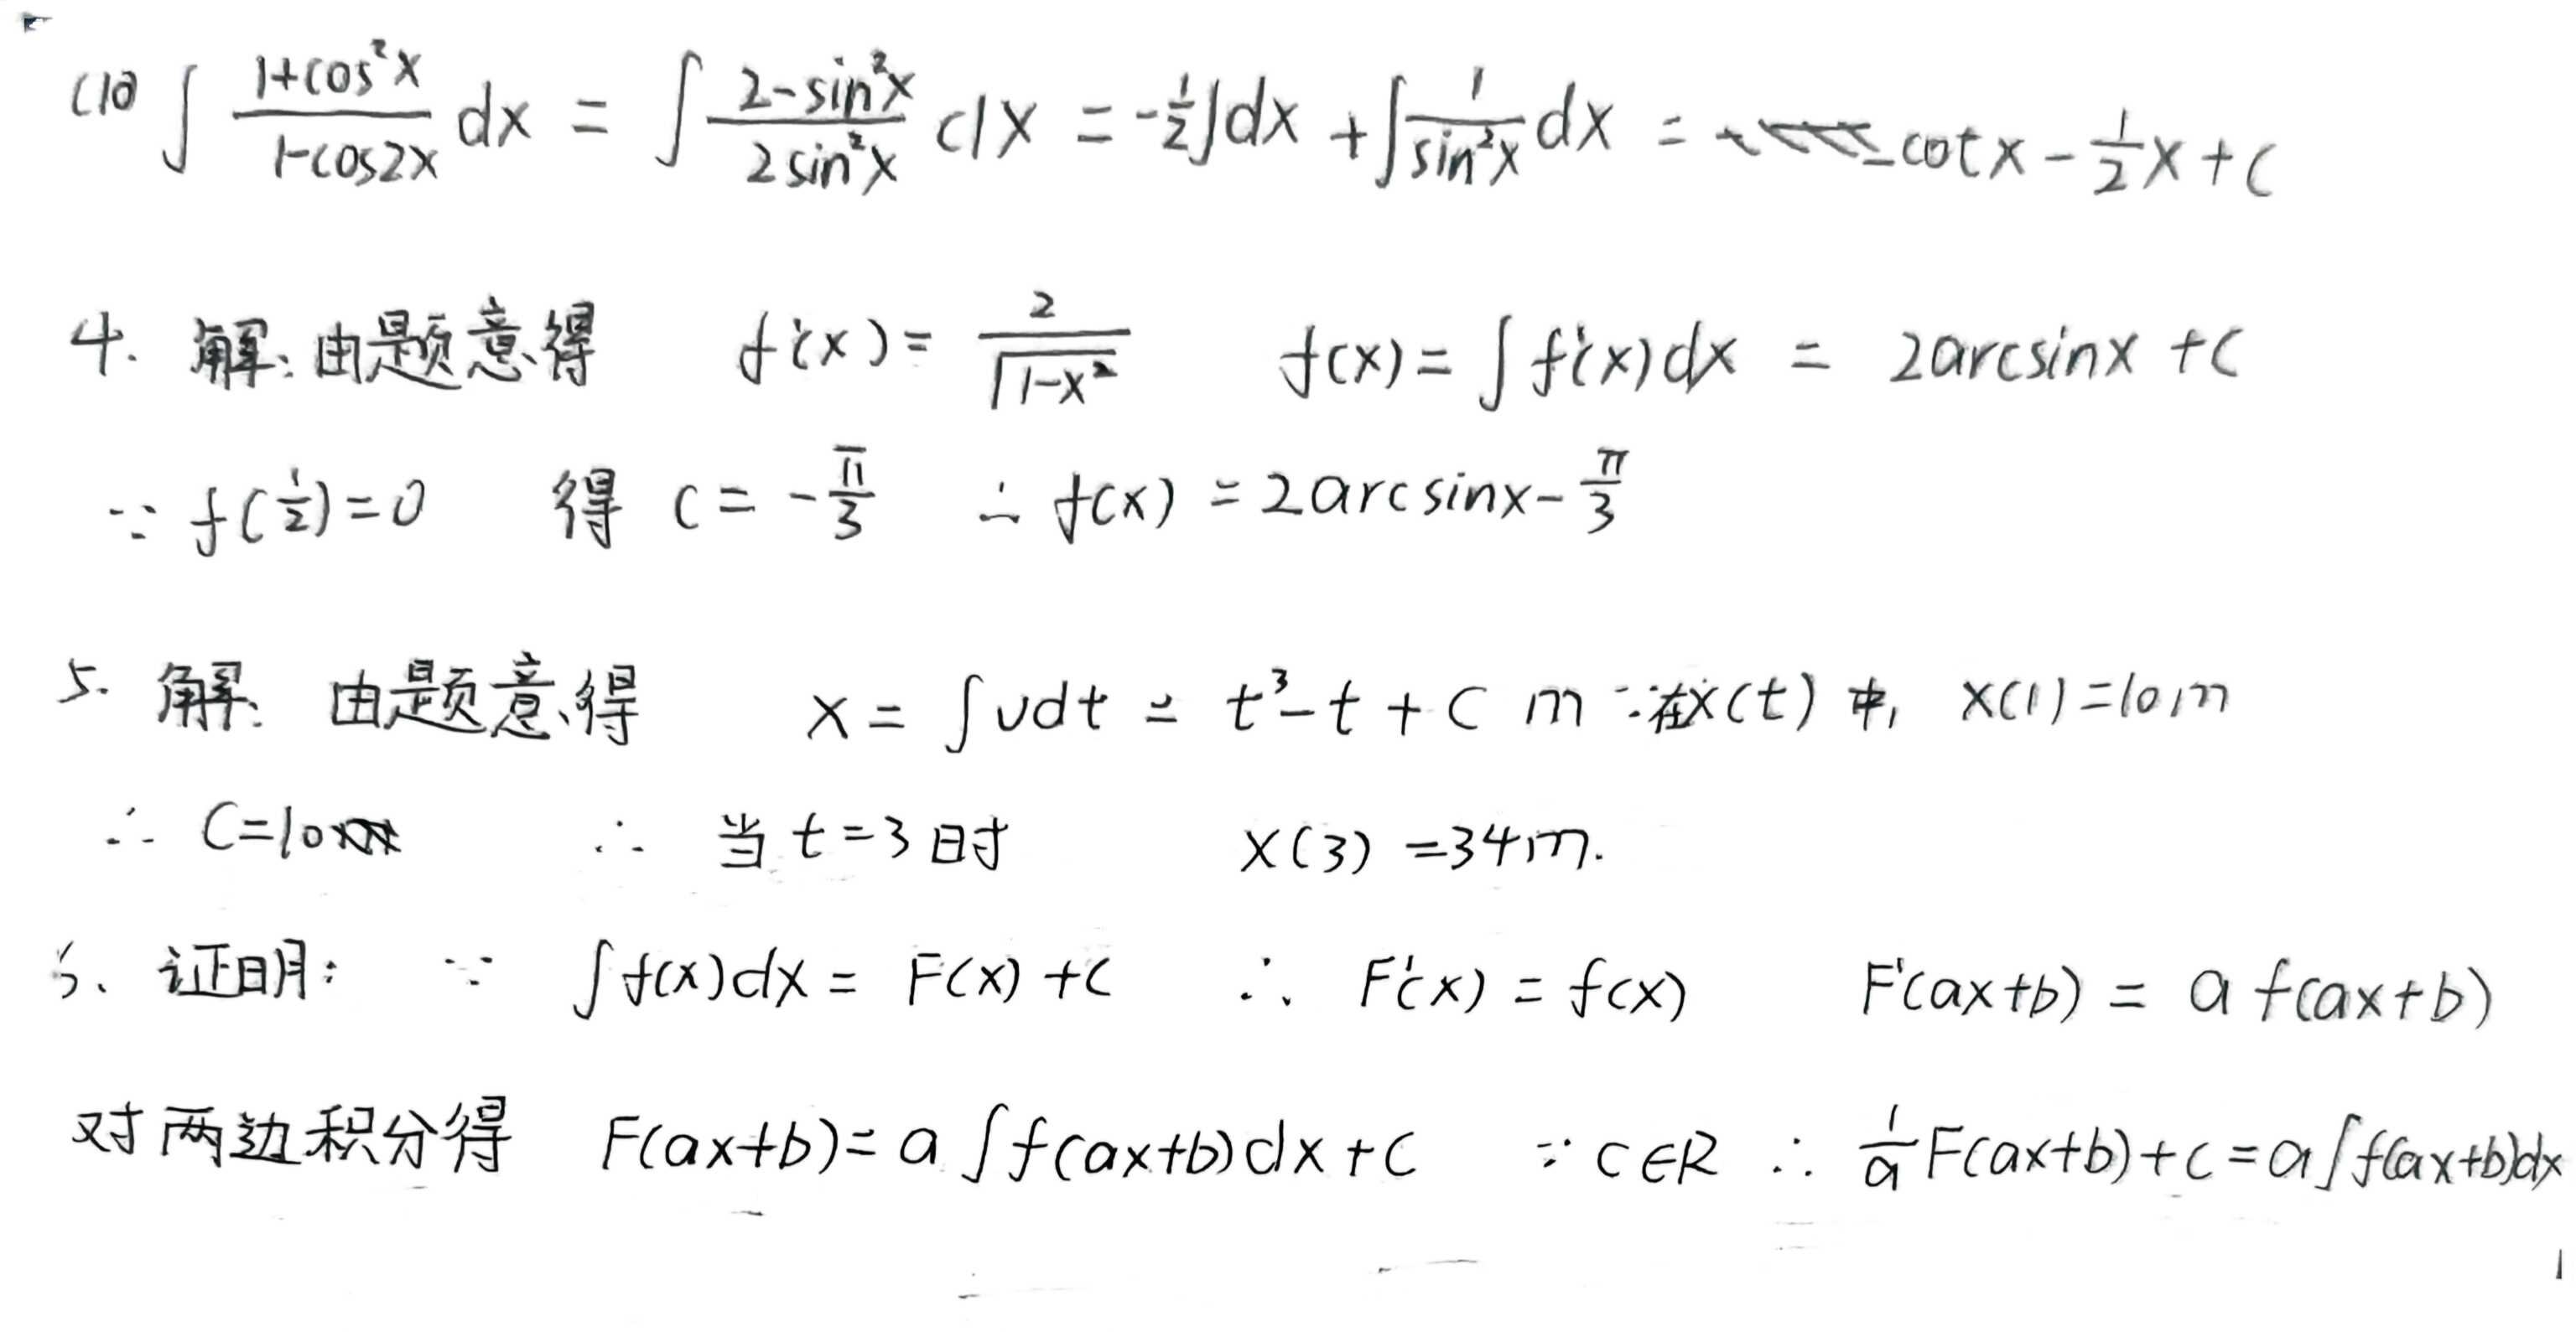 (10) ∫ (1+cos²x)/(1-cos2x) dx = ∫ (2-sin²x)/(2sin²x) dx = -½∫dx + ∫ 1/sin²x dx = -cotx - ½x + C
4. 解: 由题意得 f'(x) = 2/√(1-x²) f(x) = ∫f'(x)dx = 2arcsinx + C
∵ f(½)=0 得 C = -π/3 ∴ f(x) = 2arcsinx - π/3
5. 解: 由题意得 x = ∫vdt = t³-t+C m ∵在x(t)中, x(1)=10m
∴ C=10 ∴ 当t=3时 x(3)=34m.
6、证明: ∵ ∫f(x)dx = F(x)+C ∴ F'(x) = f(x) F'(ax+b) = a f(ax+b)
对两边积分得 F(ax+b) = a∫f(ax+b)dx + C ∵ C∈R ∴ 1/a F(ax+b)+C = a∫f(ax+b)dx